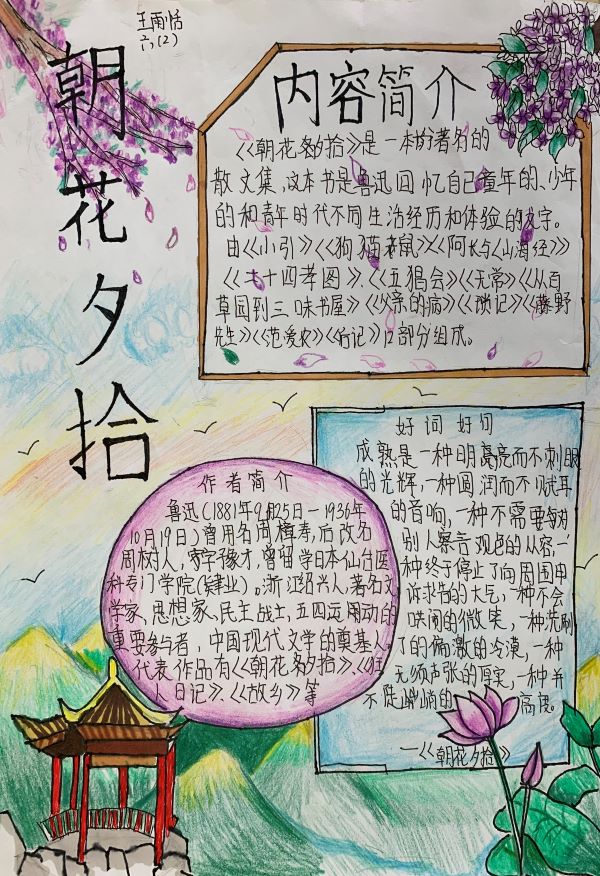 王雨恬
六(2)
朝花夕拾
内容简介
《朝花夕拾》是一本的著名的
散文集,这本书是鲁迅回忆自己童年的、少年
的和青年时代不同生活经历和体验的文字。
由《小引》《狗猫鼠》《阿长与《山海经》》
《二十四孝图》、《五猖会》《无常》《从百
草园到三味书屋》《父亲的病》《琐记》《藤野
先生》《范爱农》《后记》12部分组成。
好词好句
成熟是一种明亮而不刺眼
的光辉,一种圆润而不腻耳
的音响,一种不需要每对
别人察言观色的从容,一
种终于停止了向周围申
诉求告的大气,一种不会
哄闹的微笑,一种洗刷
了的偏激的冷漠,一种
无须声张的厚实,一种并
不陡峭的高度。
—《朝花夕拾》
作者简介
鲁迅(1881年9月25日—1936年
10月19日)曾用名周樟寿,后改名
周树人,字豫才,曾留学日本仙台医
科专门学院(肄业)。浙江绍兴人,著名文
学家、思想家、民主战士,五四运用动的
重要参与者,中国现代文学的奠基人。
代表作品有《朝花夕拾》、《狂
人日记》、《故乡》等